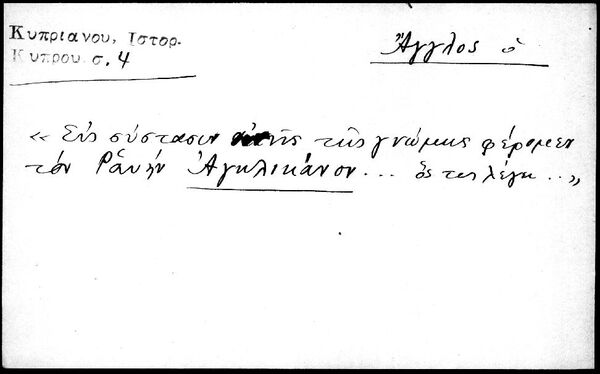 Κυπριανου, Ιστορ.
Κυπρου σ. 4
Ἄγγλος ὁ
« Εἰς σύστασιν τῆς γνώμης φέρομεν
τόν Ἀγκλικάνον ... ὅς λέγει ... »